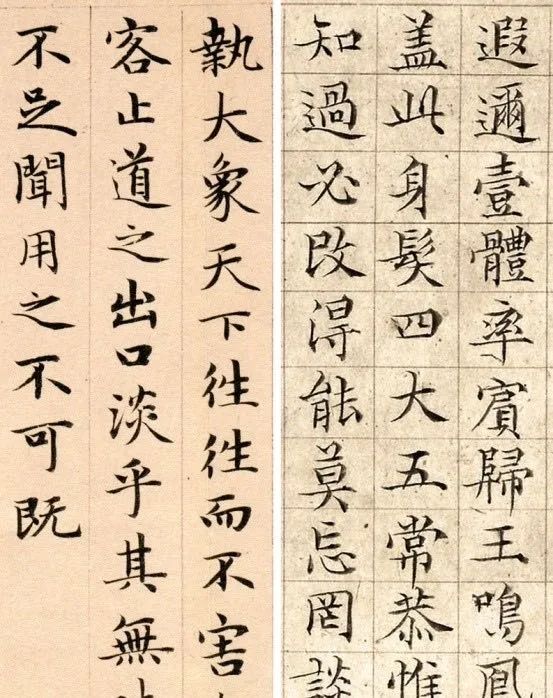 遐邇壹體率賓歸王鳴鳳
盖此身髮四大五常恭惟
知過必改得能莫忘罔談
執大象天下往往而不害
容止道之出口淡乎其無
不足聞用之不可既